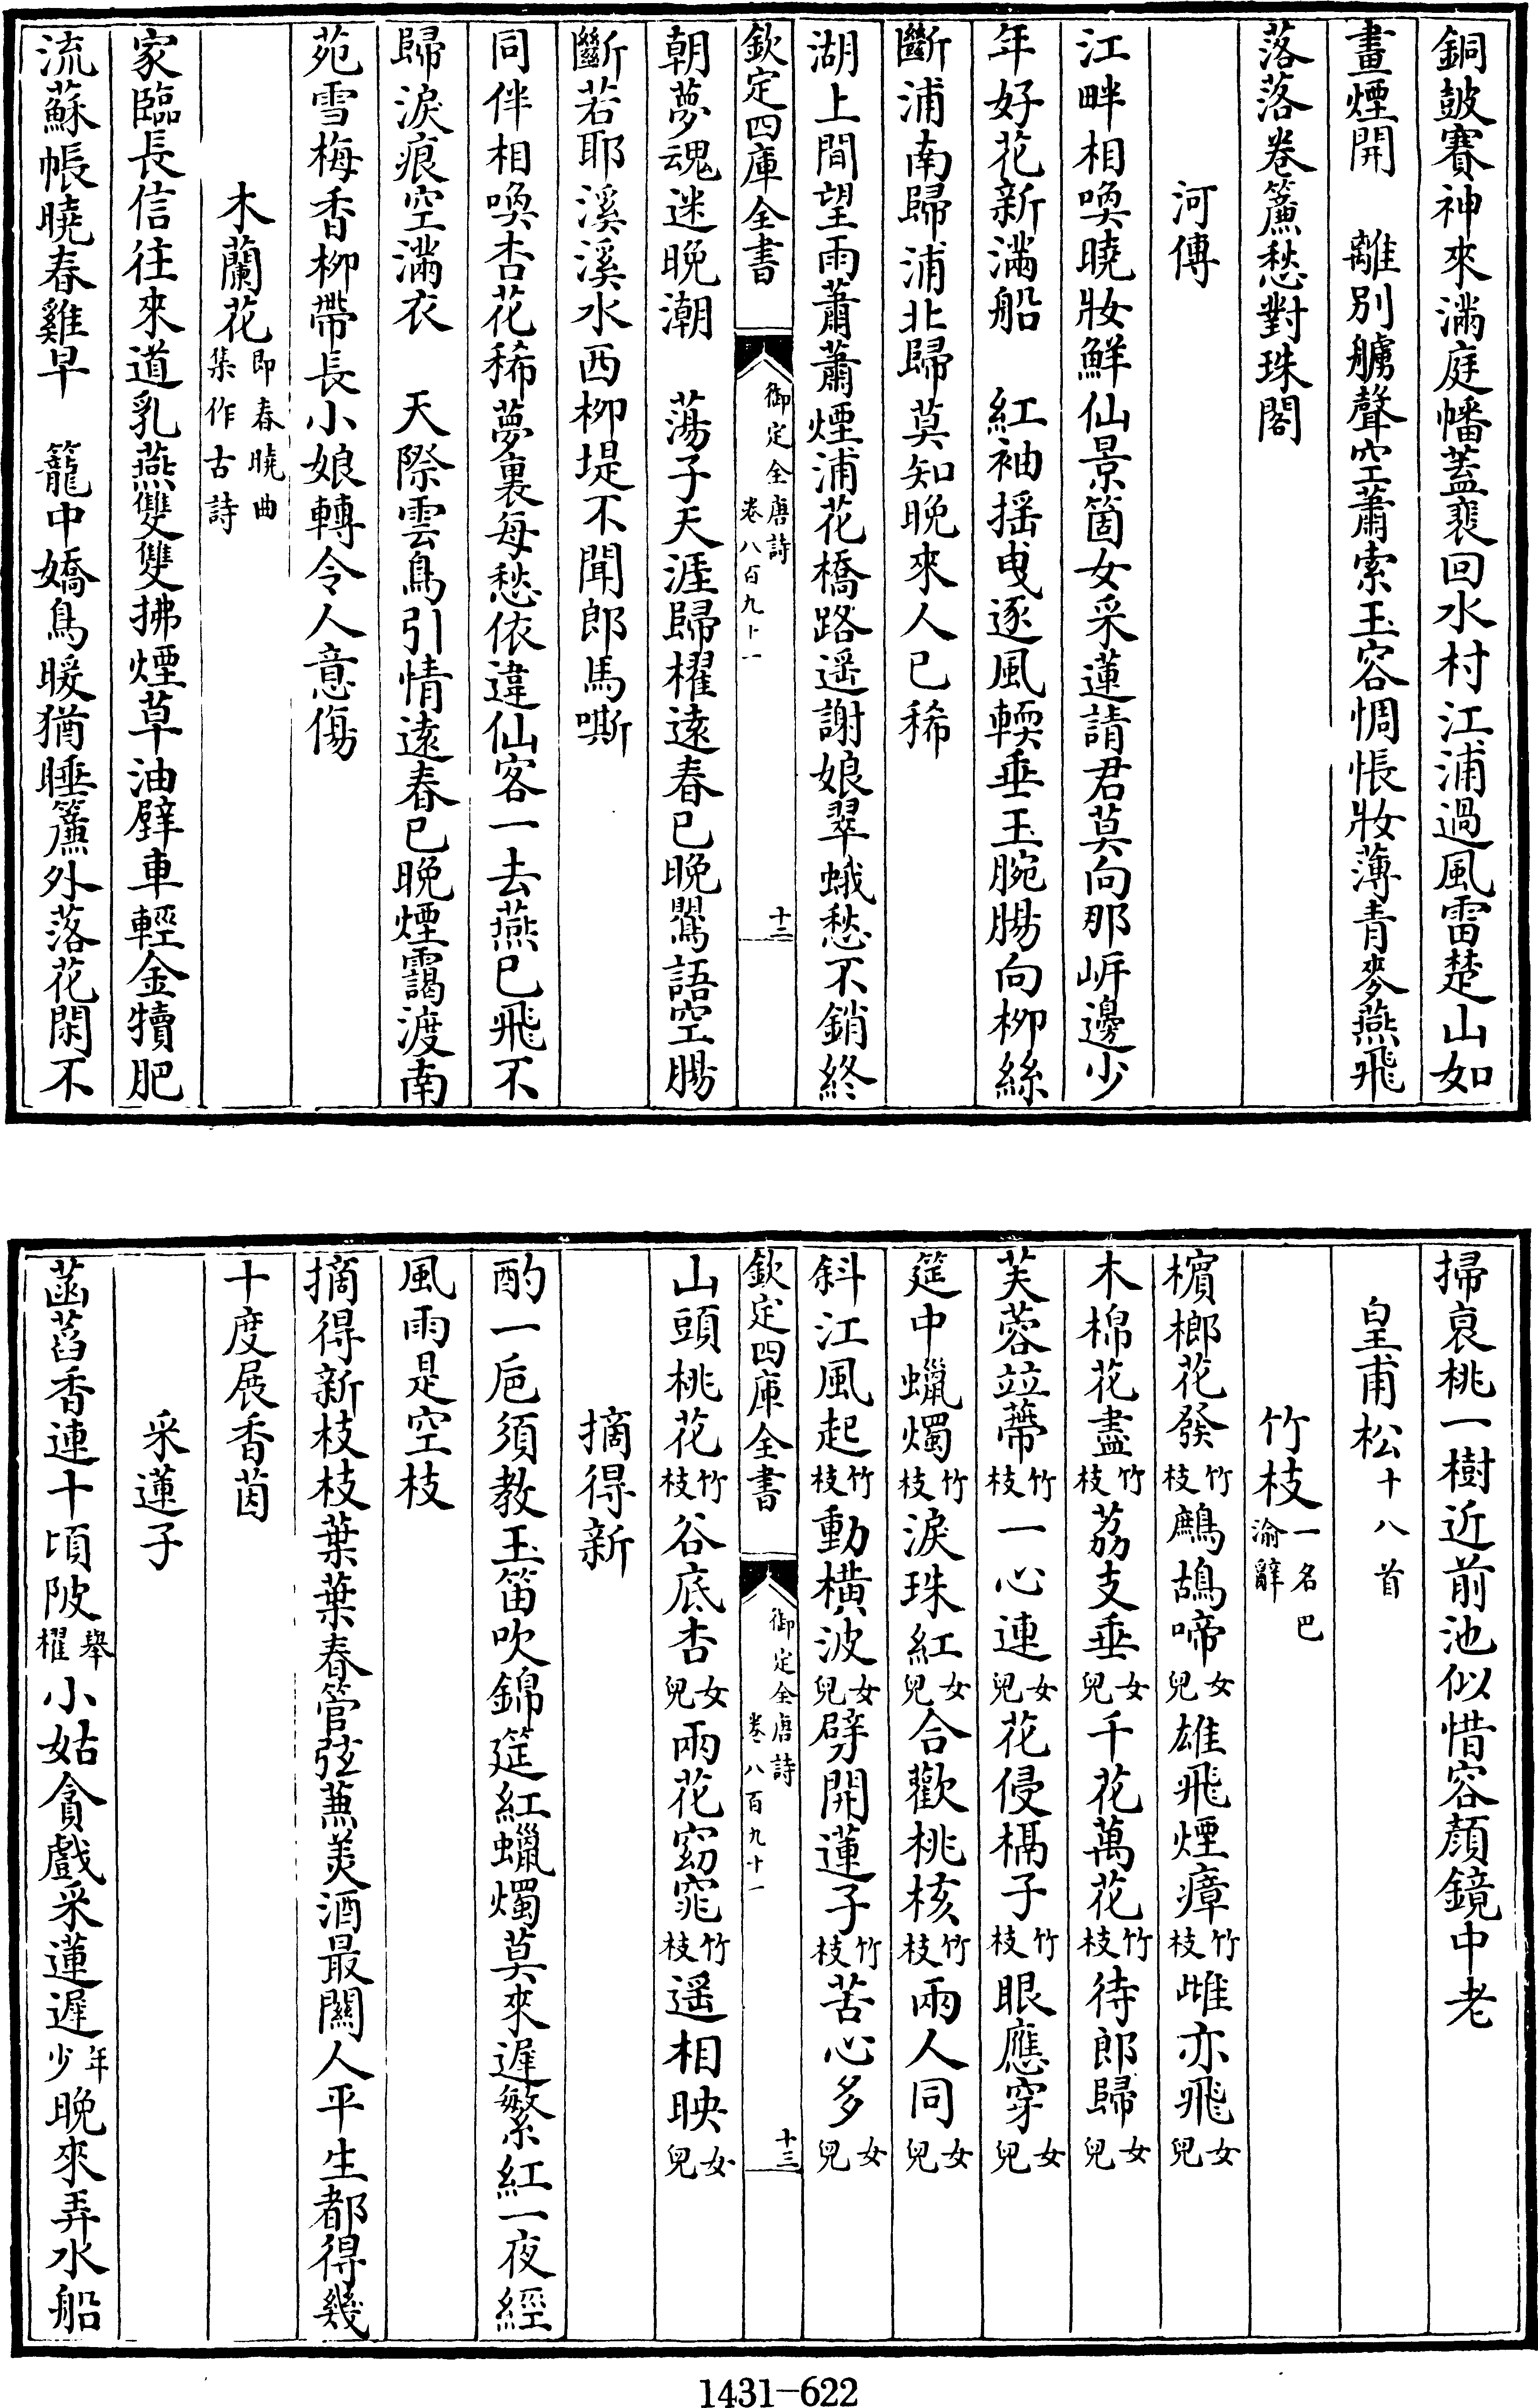 銅皷賽神來滿庭幡蓋裴回水村江浦過風雷楚山如
畫煙開　離別艣聲空蕭索玉容惆悵妝薄青麥燕飛
落落卷簾愁對珠閣
河傳
江畔相喚曉妝鮮仙景箇女采蓮請君莫向那岍邊少
年好花新滿船　紅袖揺曵逐風輭垂玉腕腸向柳絲
斷浦南歸浦北歸莫知晚來人已稀
湖上間望雨蕭蕭煙浦花橋路遥謝娘翠蛾愁不銷終
欽定四庫全書　御定全唐詩卷八百九十一　十二
朝夢魂迷晚潮　蕩子天涯歸櫂遠春已晚鶯語空腸
斷若耶溪溪水西柳堤不聞郎馬嘶
同伴相喚杏花稀夢裏每愁依違仙客一去燕已飛不
歸淚痕空滿衣　天際雲鳥引情遠春已晚煙靄渡南
苑雪梅香柳帶長小娘轉令人意傷
木蘭花即春曉曲集作古詩
家臨長信往來道乳燕雙雙拂煙草油壁車輕金犢肥
流蘇帳曉春雞早　籠中嬌鳥暖猶睡簾外落花閑不
掃哀桃一樹近前池似惜容顔鏡中老
皇甫松十八首
竹枝一名巴渝辭
檳榔花發竹枝鷓鴣啼女兒雄飛煙瘴竹枝雌亦飛女兒
木棉花盡竹枝荔支垂女兒千花萬花竹枝待郎歸女兒
芙蓉竝蔕竹枝一心連女兒花侵槅子竹枝眼應穿女兒
筵中蠟燭竹枝淚珠紅女兒合歡桃核竹枝兩人同女兒
斜江風起竹枝動橫波女兒劈開蓮子竹枝苦心多女兒
欽定四庫全書　御定全唐詩卷八百九十一　十三
山頭桃花竹枝谷底杏女兒兩花窈窕竹枝遥相映女兒
摘得新
酌一巵須教玉笛吹錦筵紅蠟燭莫來遲繁紅一夜經
風雨是空枝
摘得新枝枝葉葉春管弦兼美酒最關人平生都得幾
十度展香茵
采蓮子
菡萏香連十頃陂舉櫂小姑貪戲采蓮遲年少晚來弄水船
1431-622